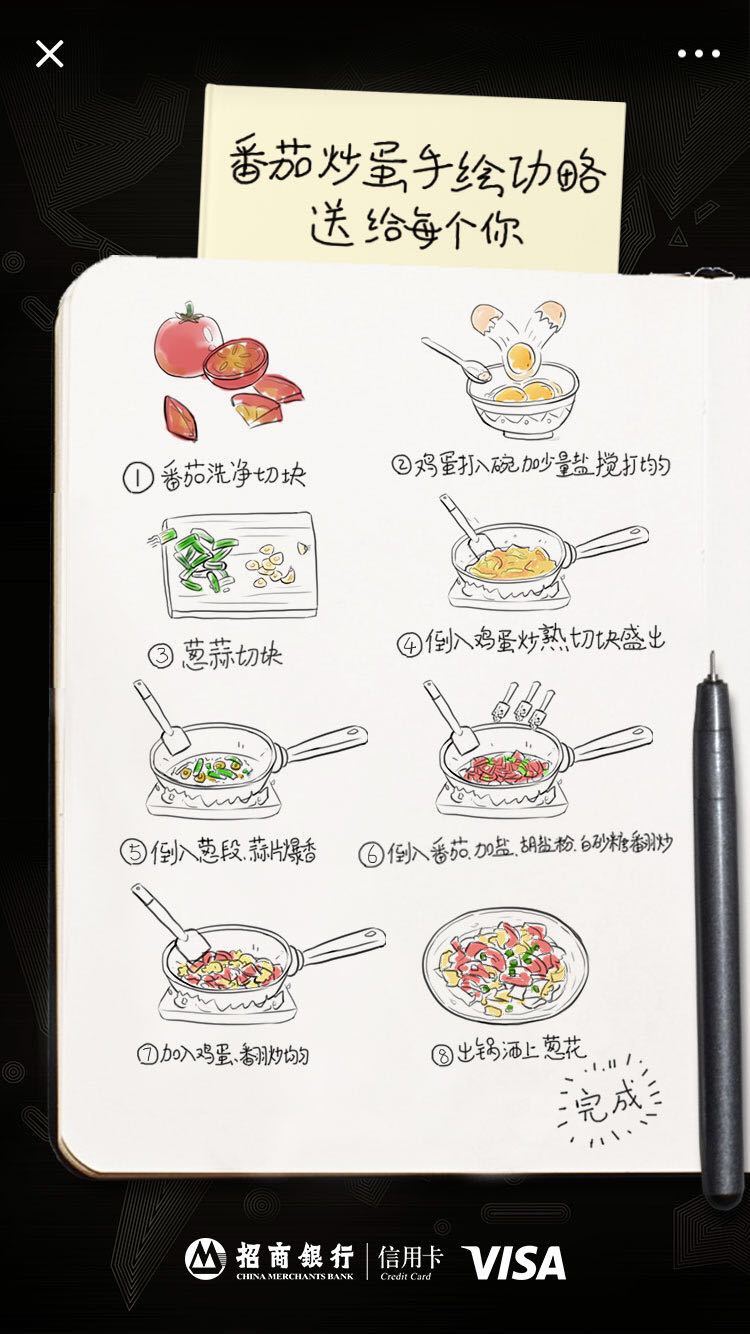 番茄炒蛋手绘功略
送给每个你
①番茄洗净切块
②鸡蛋打入碗加少量盐搅打均匀
③葱蒜切块
④倒入鸡蛋炒熟切块盛出
⑤倒入葱段、蒜片爆香
⑥倒入番茄、加盐、胡盐粉、白砂糖翻炒
⑦加入鸡蛋、翻炒均匀
⑧出锅洒上葱花
完成
招商銀行 信用卡 VISA
CHINA MERCHANTS BANK Credit Card